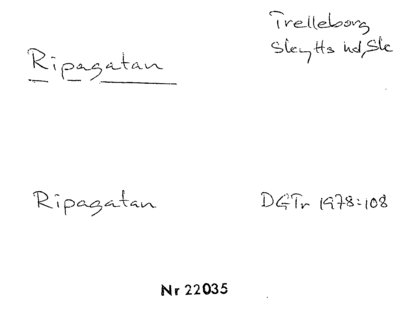 Trelleborg
Skytts hd, Sk
Ripagatan
Ripagatan
DGTr 1978:108
Nr 22035